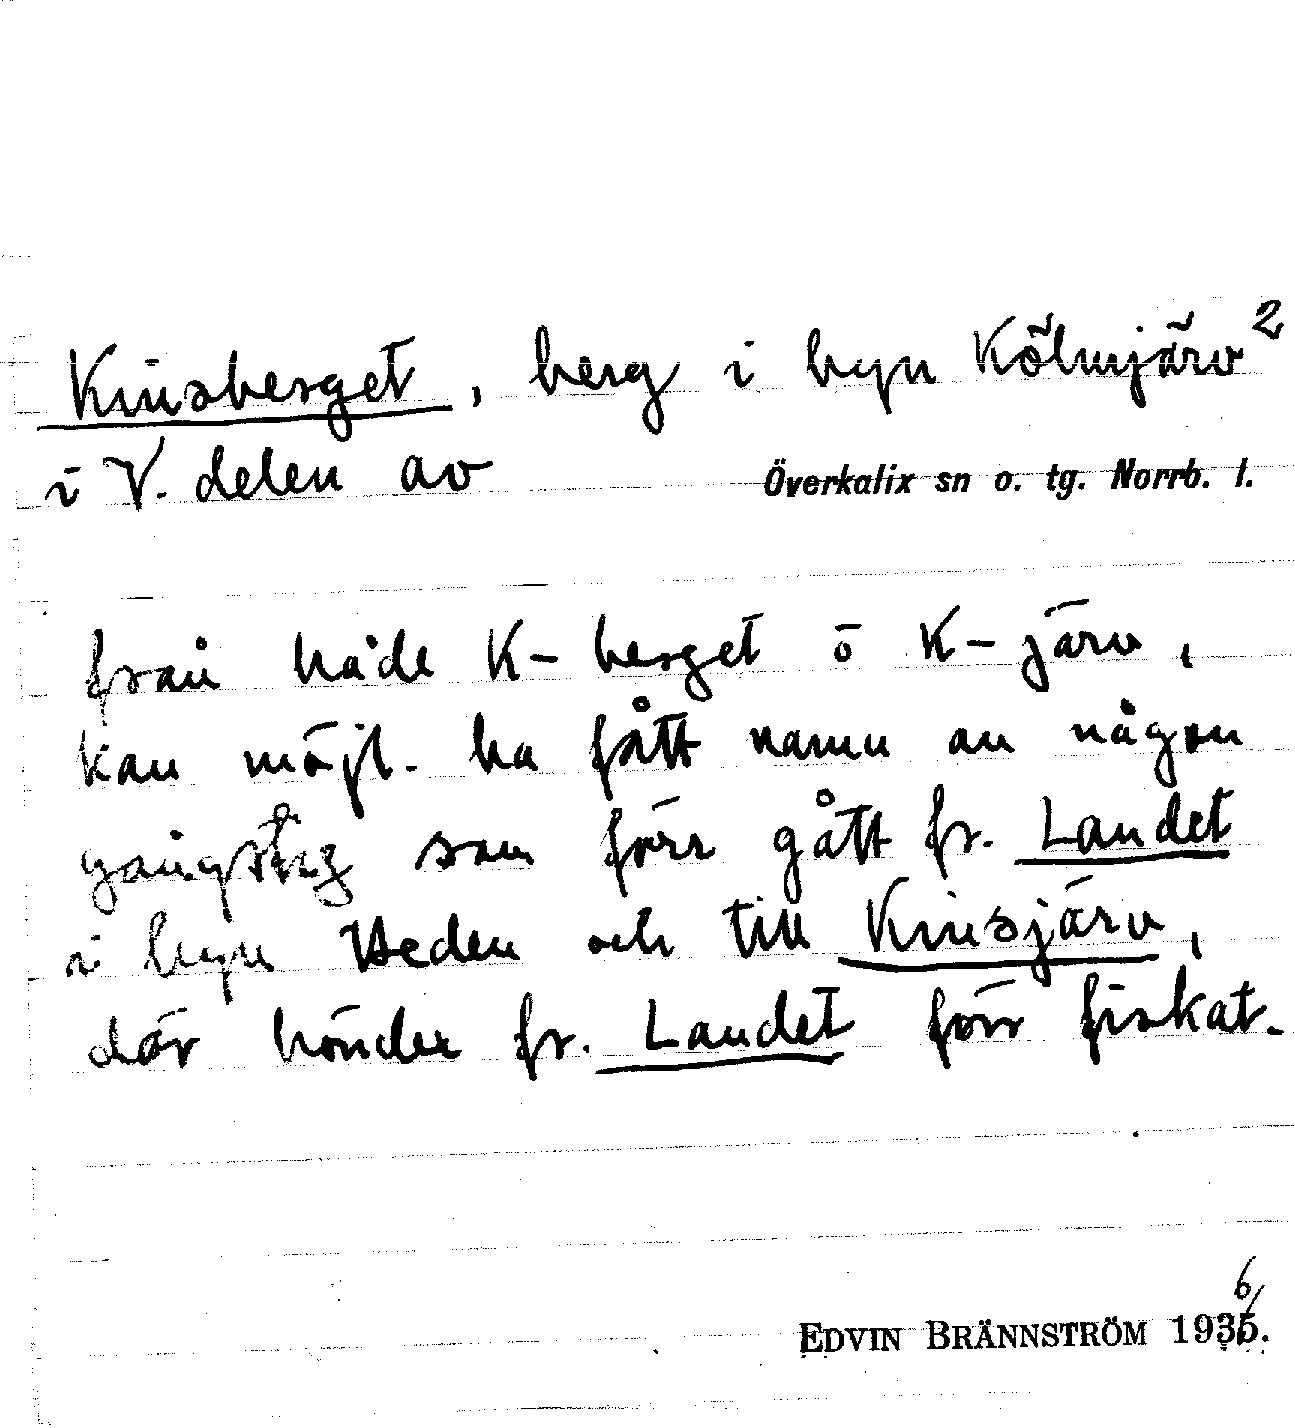 Kinsberget, berg i byn Kölmjärv²
i V. delen av Överkalix sn o. tg. Norrb. l.
från både K- berget o K- järv,
kan möjl. ha fått namn av någon
gångstig som förr gått fr. Landet
i byn Heden och till Kinsjärv,
där bönder fr. Landet förr fiskat.
6/
EDVIN BRÄNNSTRÖM 1935.